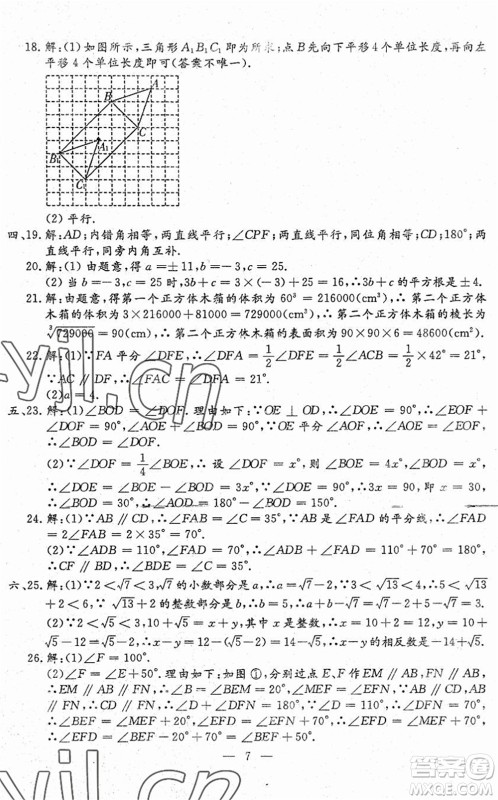 18. 解:(1)如图所示,三角形A₁B₁C₁即为所求;点B先向下平移4个单位长度,再向左
平移4个单位长度即可(答案不唯一).
A
B
C
A₁
B₁
C₁
(2)平行.
四、19. 解:AD;内错角相等,两直线平行;∠CPF;两直线平行,同位角相等;CD;180°;两
直线平行,同旁内角互补.
20. 解:(1)由题意,得a=±11,b=-3,c=25.
(2)当b=-3,c=25时,3b+c=3×(-3)+25=16,∴3b+c的平方根是±4.
21. 解:由题意,得第一个正方体木箱的体积为60³=216000(cm³),∴第二个正方体
木箱的体积为3×216000+81000=729000(cm³),∴第二个正方体木箱的棱长为
∛729000=90(cm),∴第二个正方体木箱的表面积为90×90×6=48600(cm²).
22. 解:(1)∵FA平分∠DFE,∴∠DFA=1/2∠DFE=1/2∠ACB=1/2×42°=21°.
∵AC∥DF,∴∠FAC=∠DFA=21°.
(2)a=4.
五、23. 解:(1)∠BOD=∠DOF.理由如下:∵OE⊥OD,∴∠DOE=90°,∴∠EOF+
∠DOF=90°,∠AOE+∠BOD=90°.∵OE平分∠AOF,∴∠AOE=∠EOF,
∴∠BOD=∠DOF.
(2)∵∠DOF=1/4∠BOE,∴设∠DOF=x°,则∠BOD=x°,∠BOE=4x°,
∴∠DOE=∠BOE-∠BOD=3x°.∵∠DOE=90°,∴3x=90,即x=30,
∴∠BOD=30°,∴∠AOD=180°-∠BOD=150°.
24. 解:(1)∵AB∥CD,∴∠FAB=∠C=35°.∵AB是∠FAD的平分线,∴∠FAD
=2∠FAB=2×35°=70°.
(2)∵∠ADB=110°,∠FAD=70°,∴∠ADB+∠FAD=110°+70°=180°,
∴CF∥BD,∴∠BDE=∠C=35°.
六、25. 解:(1)∵2<√7<3,√7的小数部分是a,∴a=√7-2.∵3<√13<4,∴5<√13
+2<6,∵√13+2的整数部分是b,∴b=5,∴a+b-√7=√7-2+5-√7=3.
(2)∵2<√5<3,∴12<10+√5<13.∵10+√5=x+y,其中x是整数,∴x=10+2=12,y=10
+√5-12=√5-2,∴x-y=12-(√5-2)=14-√5,∴x-y的相反数是-14+√5.
26. 解:(1)∠F=100°.
(2)∠F=∠E+50°.理由如下:如图①,分别过点E、F作EM∥AB,FN∥AB,
∴EM∥AB∥FN,∴∠B=∠BEM=20°,∠MEF=∠EFN.∵AB∥CD,AB
∥FN,∴CD∥FN,∴∠D+∠DFN=180°.∵∠D=110°,∴∠DFN=70°.
∵∠BEF=∠MEF+20°,∠EFD=∠EFN+70°,∴∠EFD=∠MEF+70°,
∴∠EFD=∠BEF+50°.
— 7 —
yjl.cn
yjl.cn
答案圈
MXQE.COM